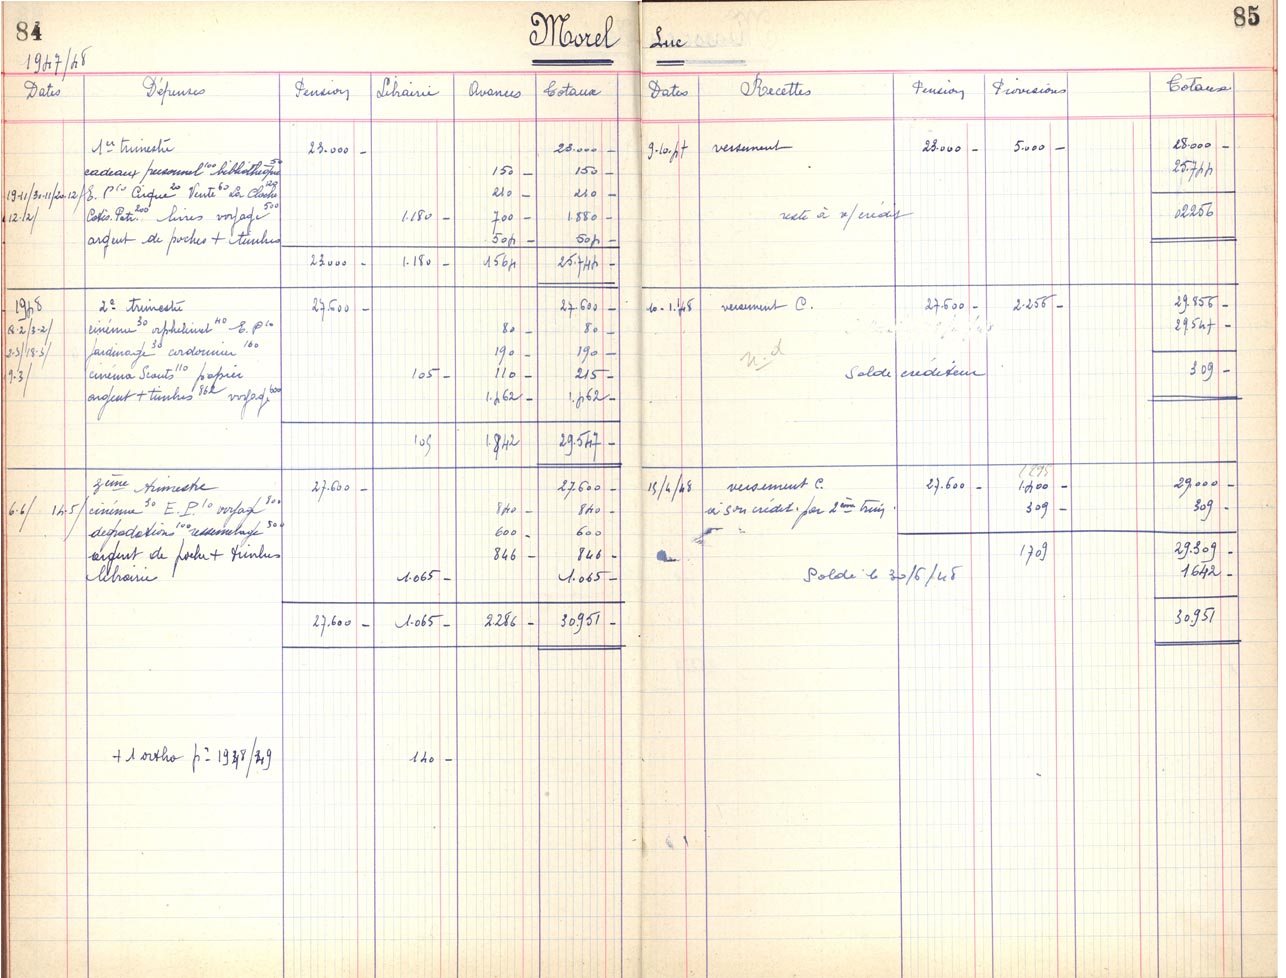 84
Morel Luc
85
1947/48
Dates Dépenses Pension Librairie Avances Totaux
1er trimestre 23.000 - 23.000 -
cadeaux personnel 100 bibliothèque 50 150 - 150 -
19-11/30-11/20-12/ E. P 10 Cirque 20 Vente 60 La Cloche 120 210 - 210 -
12-12/ 200 livres voyage 500 1.180 - 700 - 1.880 -
argent de poches + timbres 504 - 504 -
23.000 - 1.180 - 1564 25.744 -
1948 2e trimestre 27.600 - 27.600 -
3-2/ cinéma 30 orphelinat 40 E. P 10 80 - 80 -
18-3/ jardinage 30 cordonnier 160 190 - 190 -
9.3/ cinéma Scouts 110 papier 105 - 110 - 215 -
argent + timbres 862 voyage 600 1.462 - 1.462 -
105 1.842 29.547 -
3ème trimestre 27.600 - 27.600 -
6-6/ 14-5/ cinéma 30 E. P. 10 voyage 800 840 - 840 -
degradations 100 ressemelage 500 600 - 600
argent de poche + timbres 846 - 846 -
librairie 1.065 - 1.065 -
27.600 - 1.065 - 2.286 - 30.951 -
+ 1 ortho pr 1948/49 140 -
Dates Recettes Pension Provisions Totaux
9.10.47 versement 23.000 - 5.000 - 28.000 -
25.744
reste à s/crédit 02256
10-1-48 versement C. 27.600 - 2.256 - 29.856 -
29547 -
n.d
Solde créditeur 309 -
1295
15/4/48 versement C. 27.600 - 1.400 - 29.000 -
à son crédit par 2ème trim. 309 - 309 -
1709 29.309 -
Soldé le 30/6/48 1642 -
30.951